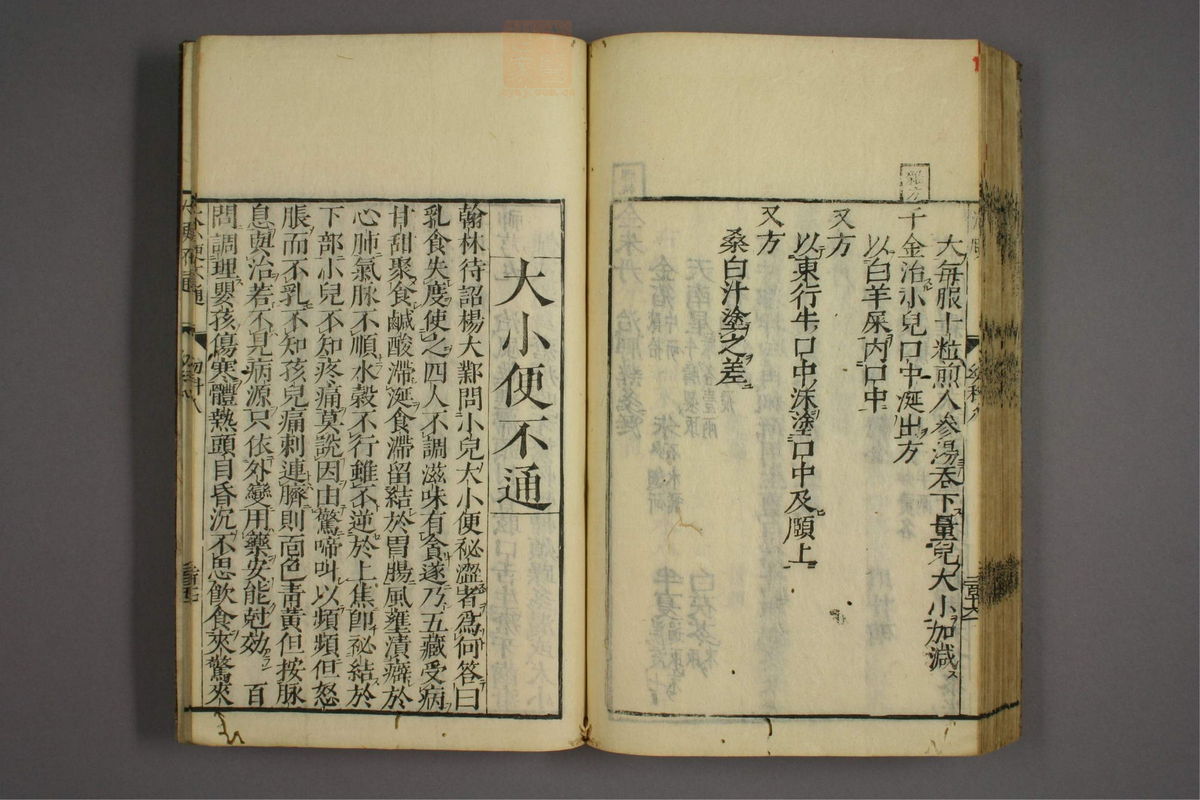 大每服十粒煎人參湯吞下量兒大小加減
千金治小兒口中涎出方
以白羊屎內口中
又方
以東行牛口中沫塗口中及頤上
又方
桑白汁塗之差
大小便不通
翰林待詔楊大鄴問小兒大小便祕澀者爲何答曰
乳食失度使之四人不調滋味有貪遂乃五藏受病
甘甜聚食鹹酸滯涎食滯留結於胃腸風壅漬癖於
心肺氣脉不順水穀不行雖不逆於上焦卽祕結於
下部小兒不知疼痛莫說因由驚啼呌以頻頻但怒
脹而不乳不知孩兒痛刺連臍則面色青黃但按脉
息與治若不見病源只依外變用藥安能尅効　百
問調理嬰孩傷寒體熱頭目昏沉不思飲食來驚來